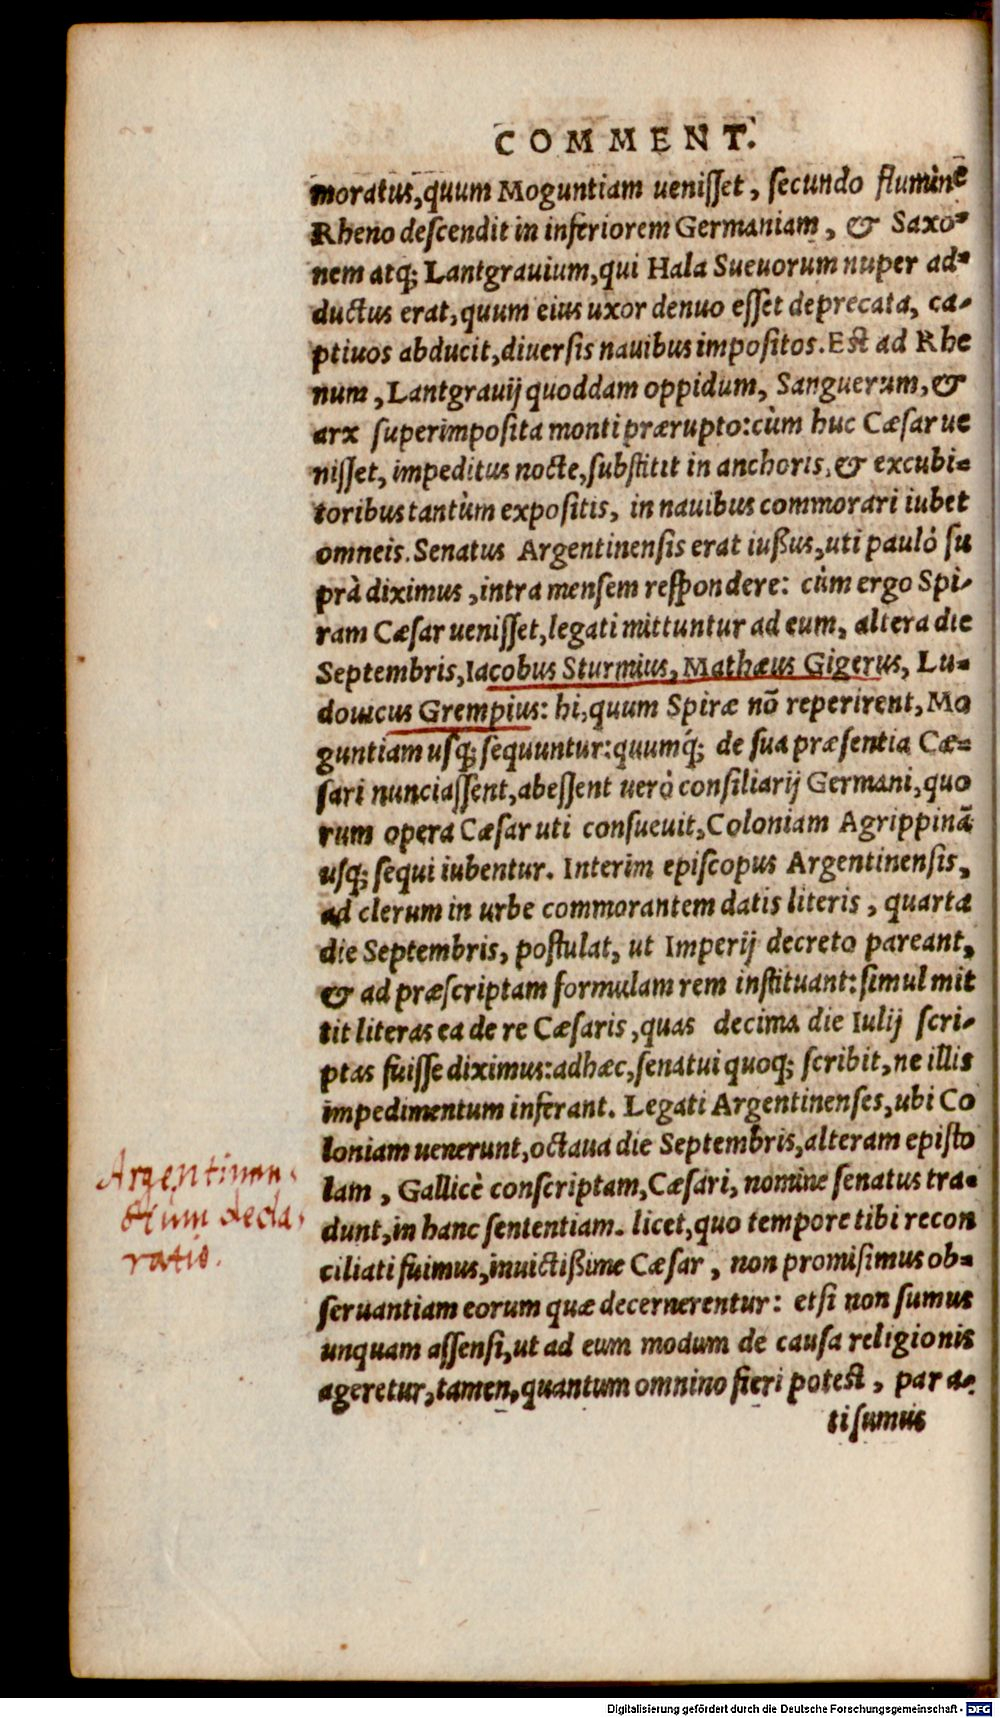 COMMENT.
moratus, quum Moguntiam uenisset, secundo flumine
Rheno descendit in inferiorem Germaniam, & Saxo-
nem atq; Lantgrauium, qui Hala Sueuorum nuper ad-
ductus erat, quum eius uxor denuo esset deprecata, ca-
ptiuos abducit, diuersis nauibus impositos. Est ad Rhe
num, Lantgrauij quoddam oppidum, Sanguerum, &
arx superimposita monti prærupto: cùm huc Cæsar ue
nisset, impeditus nocte, substitit in anchoris, & excubi-
toribus tantùm expositis, in nauibus commorari iubet
omneis. Senatus Argentinensis erat iußus, uti paulò su
prà diximus, intra mensem respondere: cùm ergo Spi-
ram Cæsar uenisset, legati mittuntur ad eum, altera die
Septembris, Iacobus Sturmius, Mathæus Gigerus, Lu-
douicus Grempius: hi, quum Spiræ nō reperirent, Mo
guntiam usq; sequuntur: quumq́; de sua præsentia Cæ-
sari nunciassent, abessent uerò consiliarij Germani, quo
rum opera Cæsar uti consueuit, Coloniam Agrippinã
usq; sequi iubentur. Interim episcopus Argentinensis,
ad clerum in urbe commorantem datis literis, quarta
die Septembris, postulat, ut Imperij decreto pareant,
& ad præscriptam formulam rem instituant: simul mit
tit literas ea de re Cæsaris, quas decima die Iulij scri-
ptas fuisse diximus: adhæc, senatui quoq; scribit, ne illis
impedimentum inferant. Legati Argentinenses, ubi Co
loniam uenerunt, octaua die Septembris, alteram episto
lam, Gallicè conscriptam, Cæsari, nomine senatus tra-
dunt, in hanc sententiam. licet, quo tempore tibi recon
ciliati fuimus, inuictißime Cæsar, non promisimus ob-
seruantiam eorum quæ decernerentur: etsi non sumus
unquam assensi, ut ad eum modum de causa religionis
ageretur, tamen, quantum omnino fieri potest, para-
ti sumus
Argentinen
sium decla
ratio.
Digitalisierung gefördert durch die Deutsche Forschungsgemeinschaft - DFG